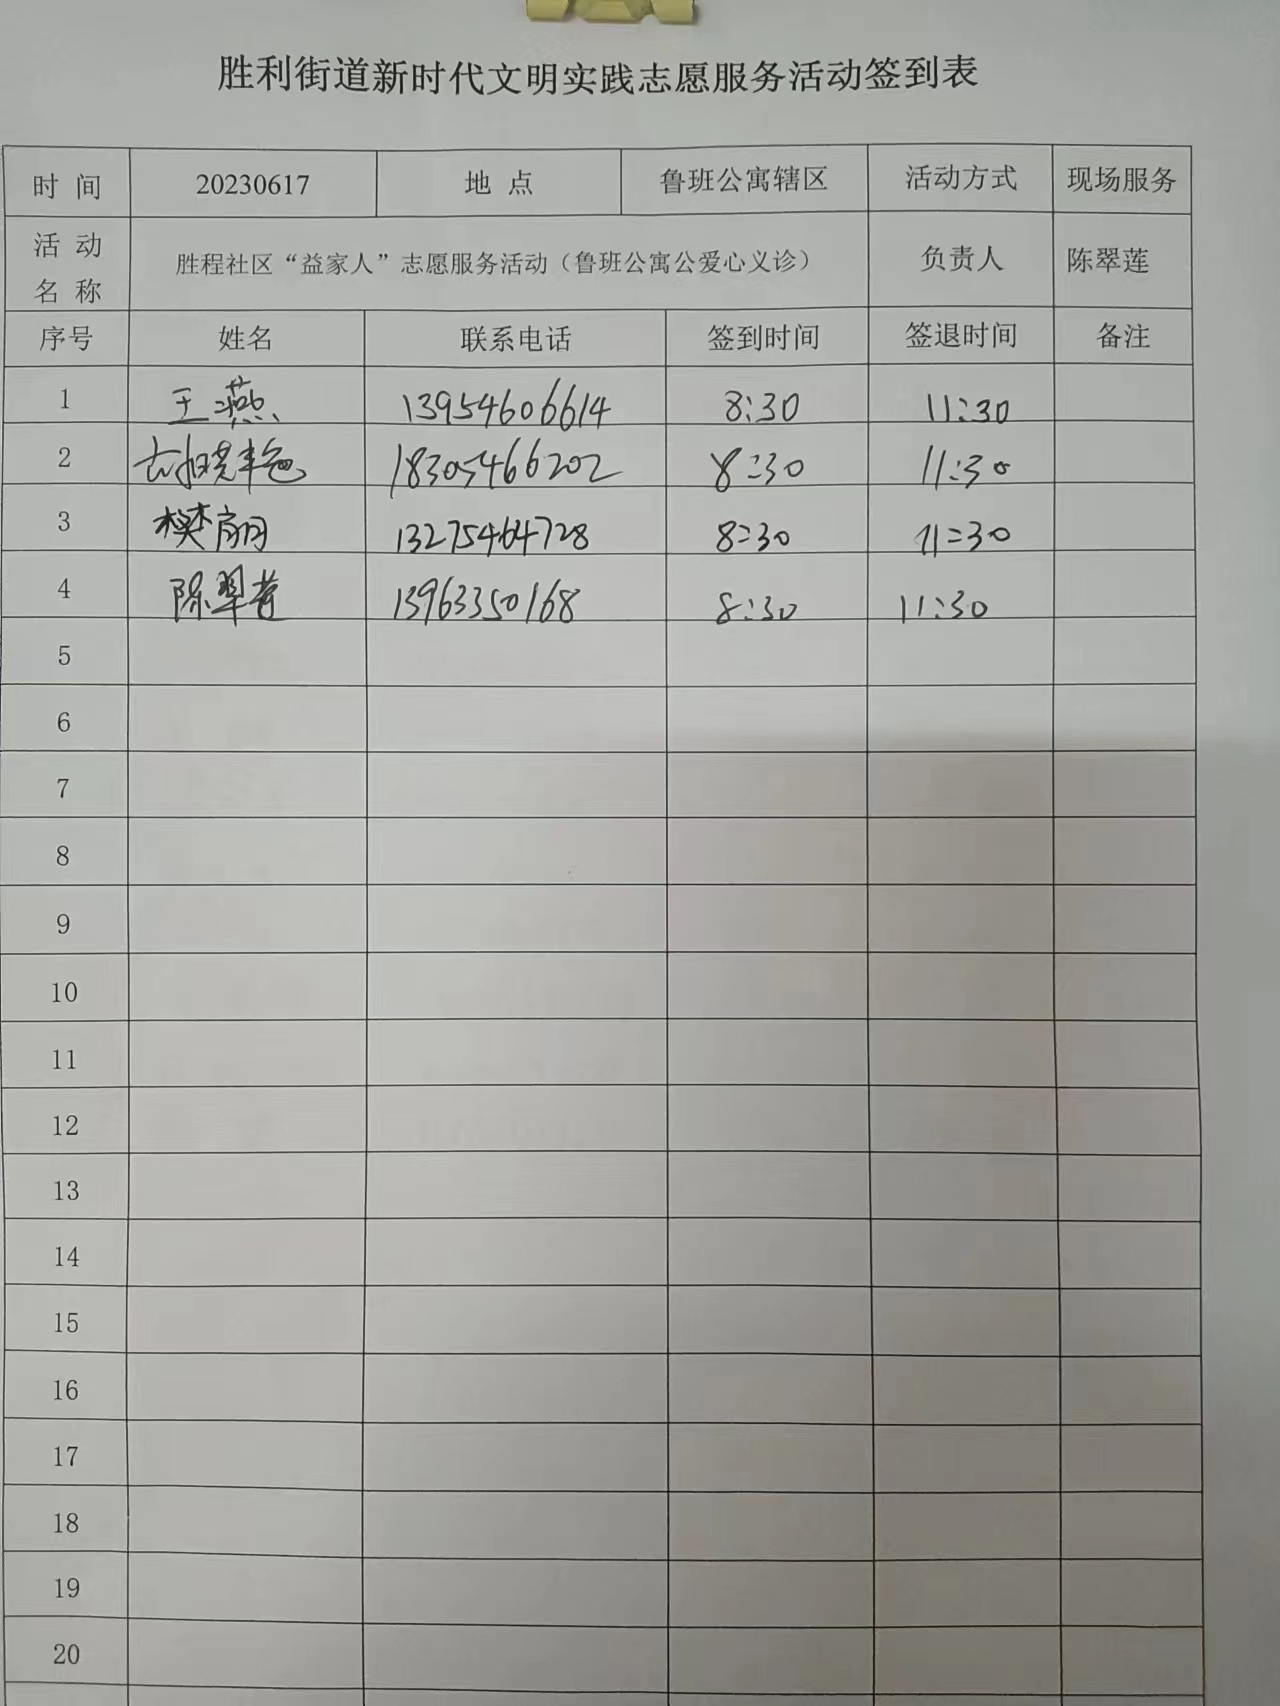 胜利街道新时代文明实践志愿服务活动签到表
时 间 20230617 地 点 鲁班公寓辖区 活动方式 现场服务
活 动 名 称 胜程社区“益家人”志愿服务活动（鲁班公寓公爱心义诊） 负责人 陈翠莲
序号 姓名 联系电话 签到时间 签退时间 备注
1 王燕 13954606614 8:30 11:30
2 18305466202 8:30 11:30
3 樊丽 13275464728 8:30 11:30
4 陈翠莲 13963350168 8:30 11:30
5
6
7
8
9
10
11
12
13
14
15
16
17
18
19
20